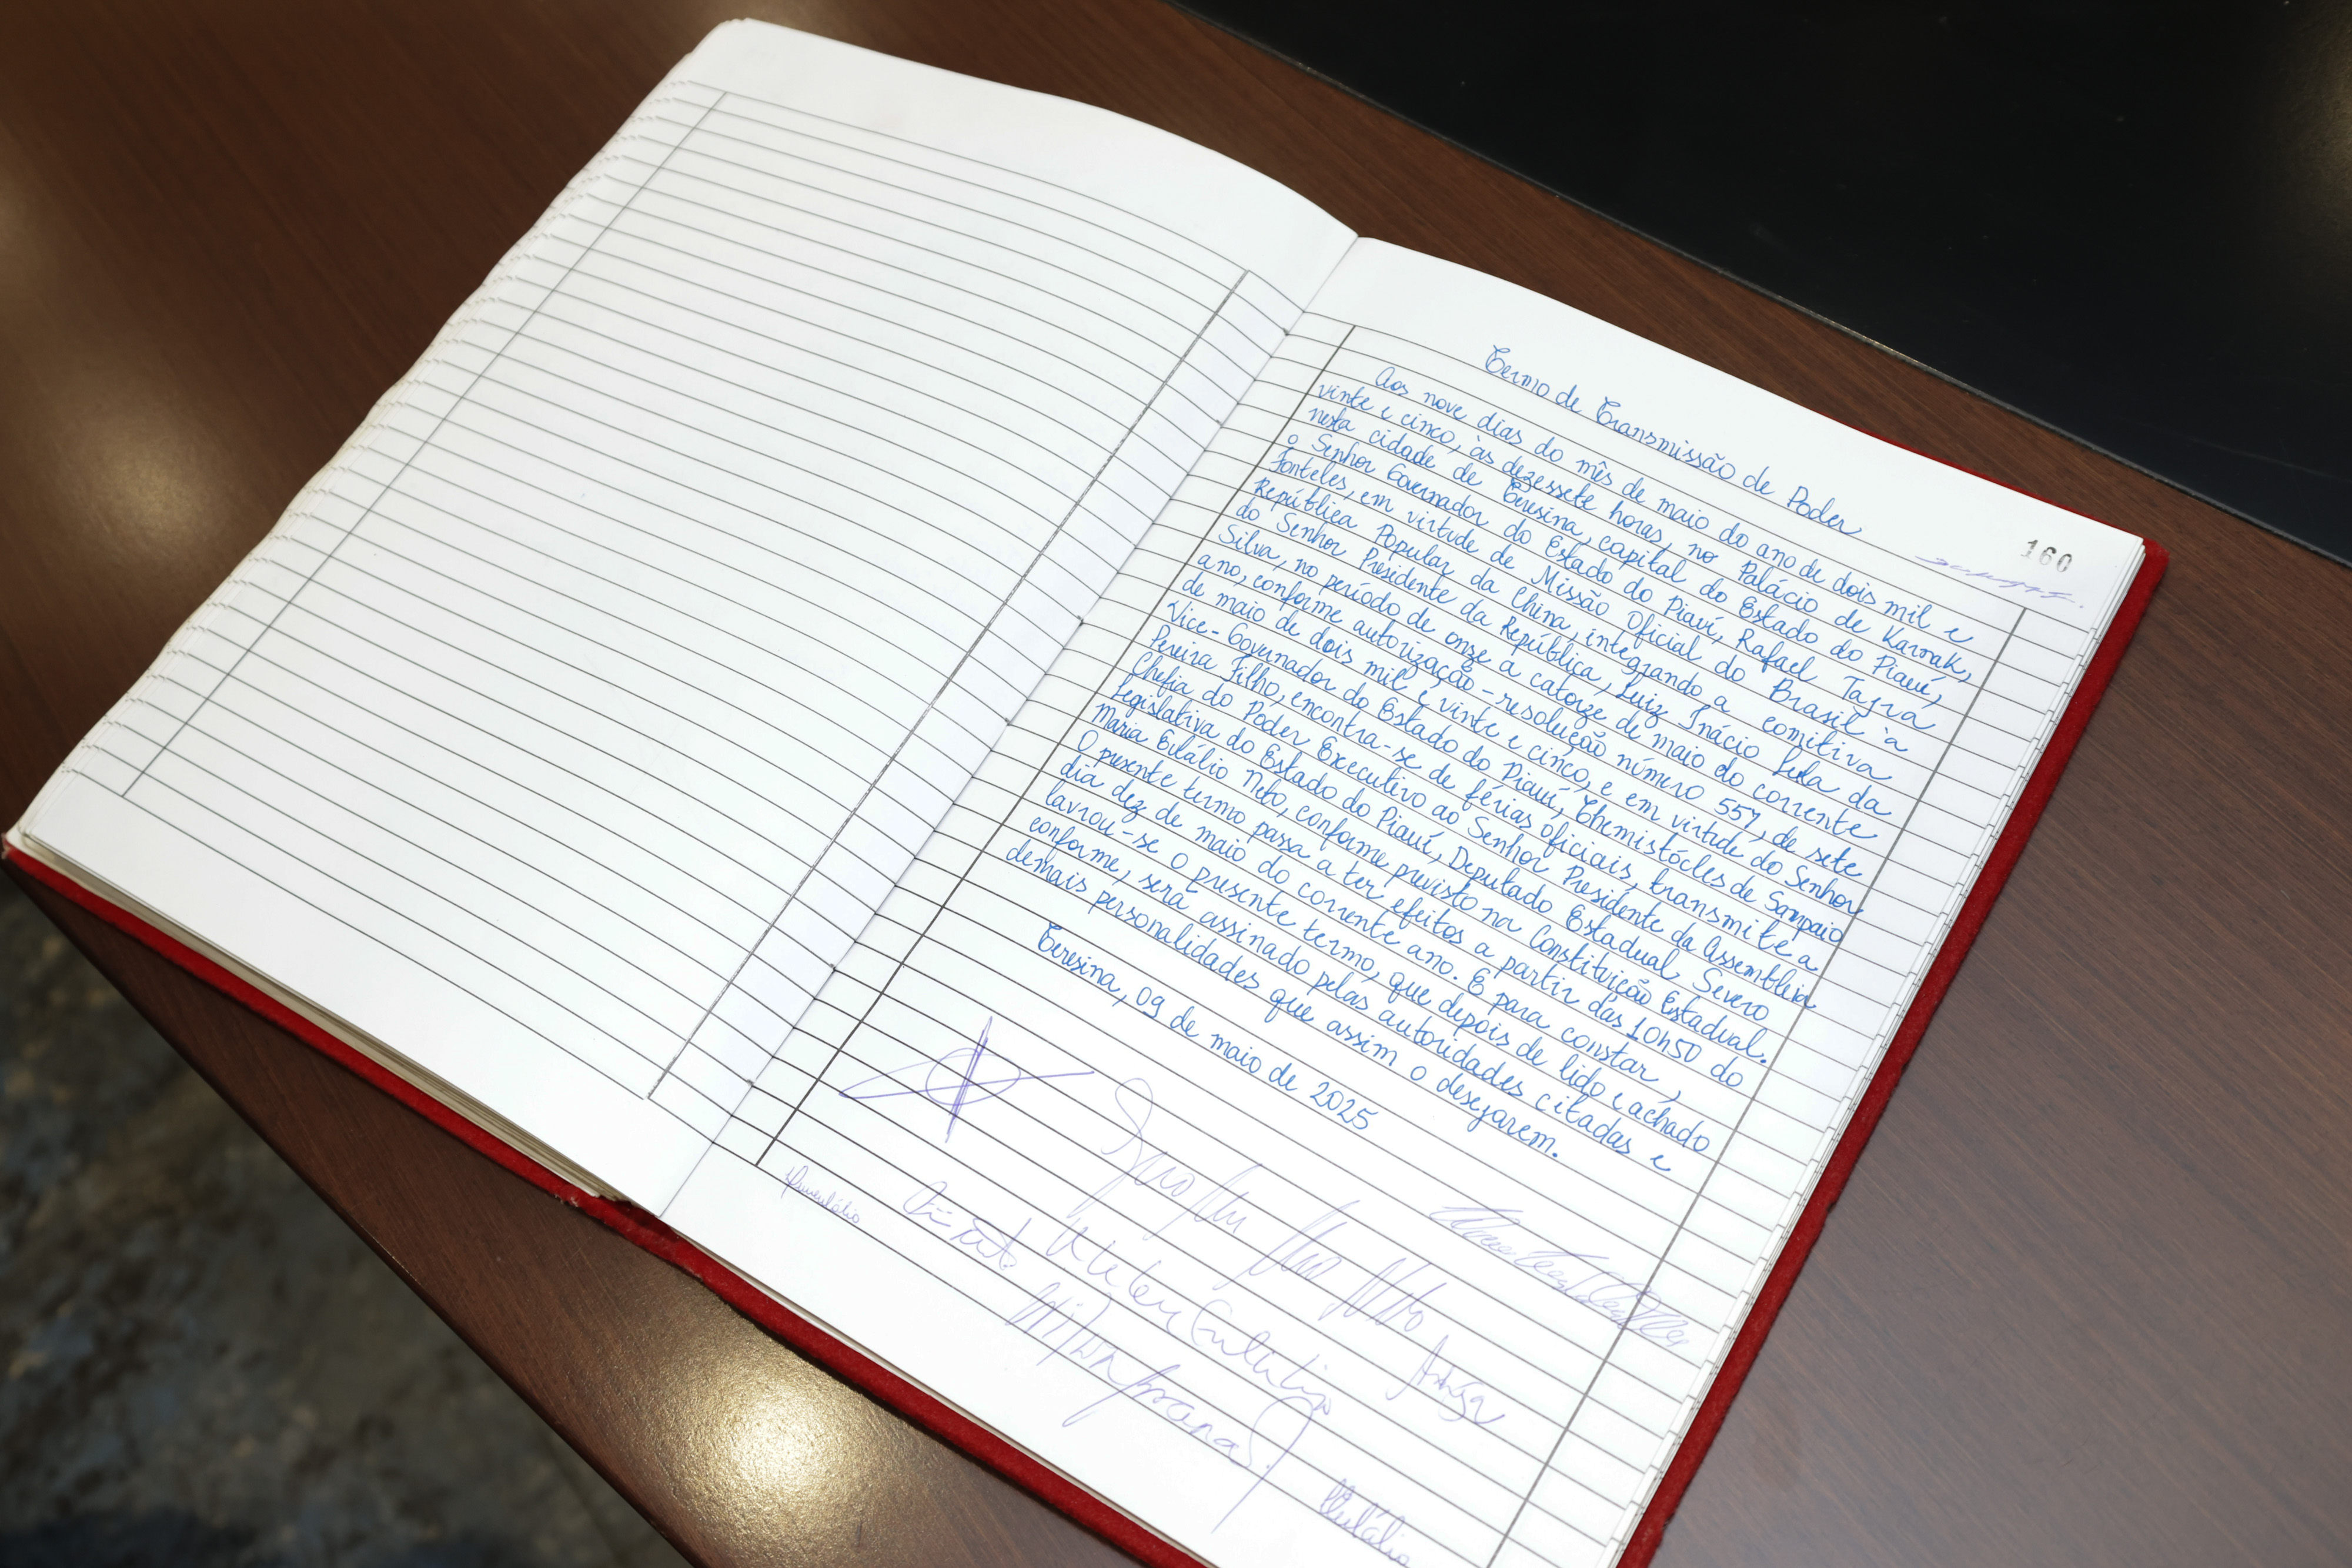 160
Termo de Transmissão de Poder
Aos nove dias do mês de maio do ano de dois mil e
vinte e cinco, às dezessete horas, no Palácio de Karnak,
nesta cidade de Teresina, capital do Estado do Piauí,
o Senhor Governador do Estado do Piauí, Rafael Tajra
Fonteles, em virtude de Missão Oficial do Brasil à
República Popular da China, integrando a comitiva
do Senhor Presidente da República, Luiz Inácio Lula da
Silva, no período de onze a catorze de maio do corrente
ano, conforme autorização-resolução número 557, de sete
de maio de dois mil e vinte e cinco, e em virtude do Senhor
Vice-Governador do Estado do Piauí, Themístocles de Sampaio
Pereira Filho, encontra-se de férias oficiais, transmite a
Chefia do Poder Executivo ao Senhor Presidente da Assembleia
Legislativa do Estado do Piauí, Deputado Estadual Severo
Maria Eulálio Neto, conforme previsto na Constituição Estadual.
O presente termo passa a ter efeitos a partir das 10h50 do
dia dez de maio do corrente ano. E para constar,
lavrou-se o presente termo, que depois de lido e achado
conforme, será assinado pelas autoridades citadas e
demais personalidades que assim o desejarem.
Teresina, 09 de maio de 2025